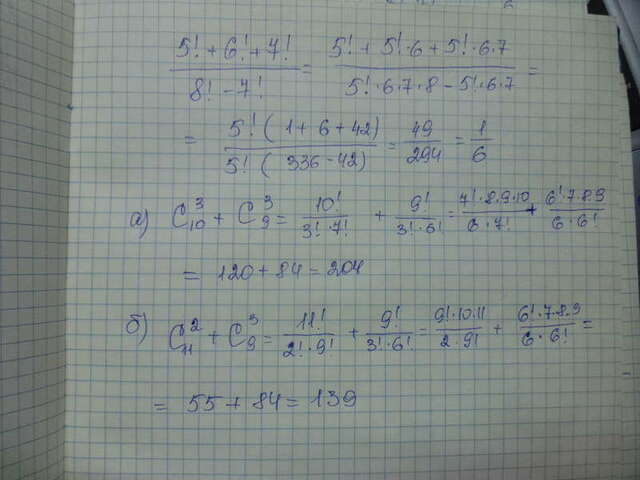 (5! + 6! + 7!)/(8! - 7!) = (5! + 5!·6 + 5!·6·7)/(5!·6·7·8 - 5!·6·7) =
= 5!(1 + 6 + 42)/5!(336 - 42) = 49/294 = 1/6
а) C₁₀³ + C₉³ = 10!/(3!·7!) + 9!/(3!·6!) = (7!·8·9·10)/(6·7!) + (6!·7·8·9)/(6·6!)
= 120 + 84 = 204
б) C₁₁² + C₉³ = 11!/(2!·9!) + 9!/(3!·6!) = (9!·10·11)/(2·9!) + (6!·7·8·9)/(6·6!) =
= 55 + 84 = 139